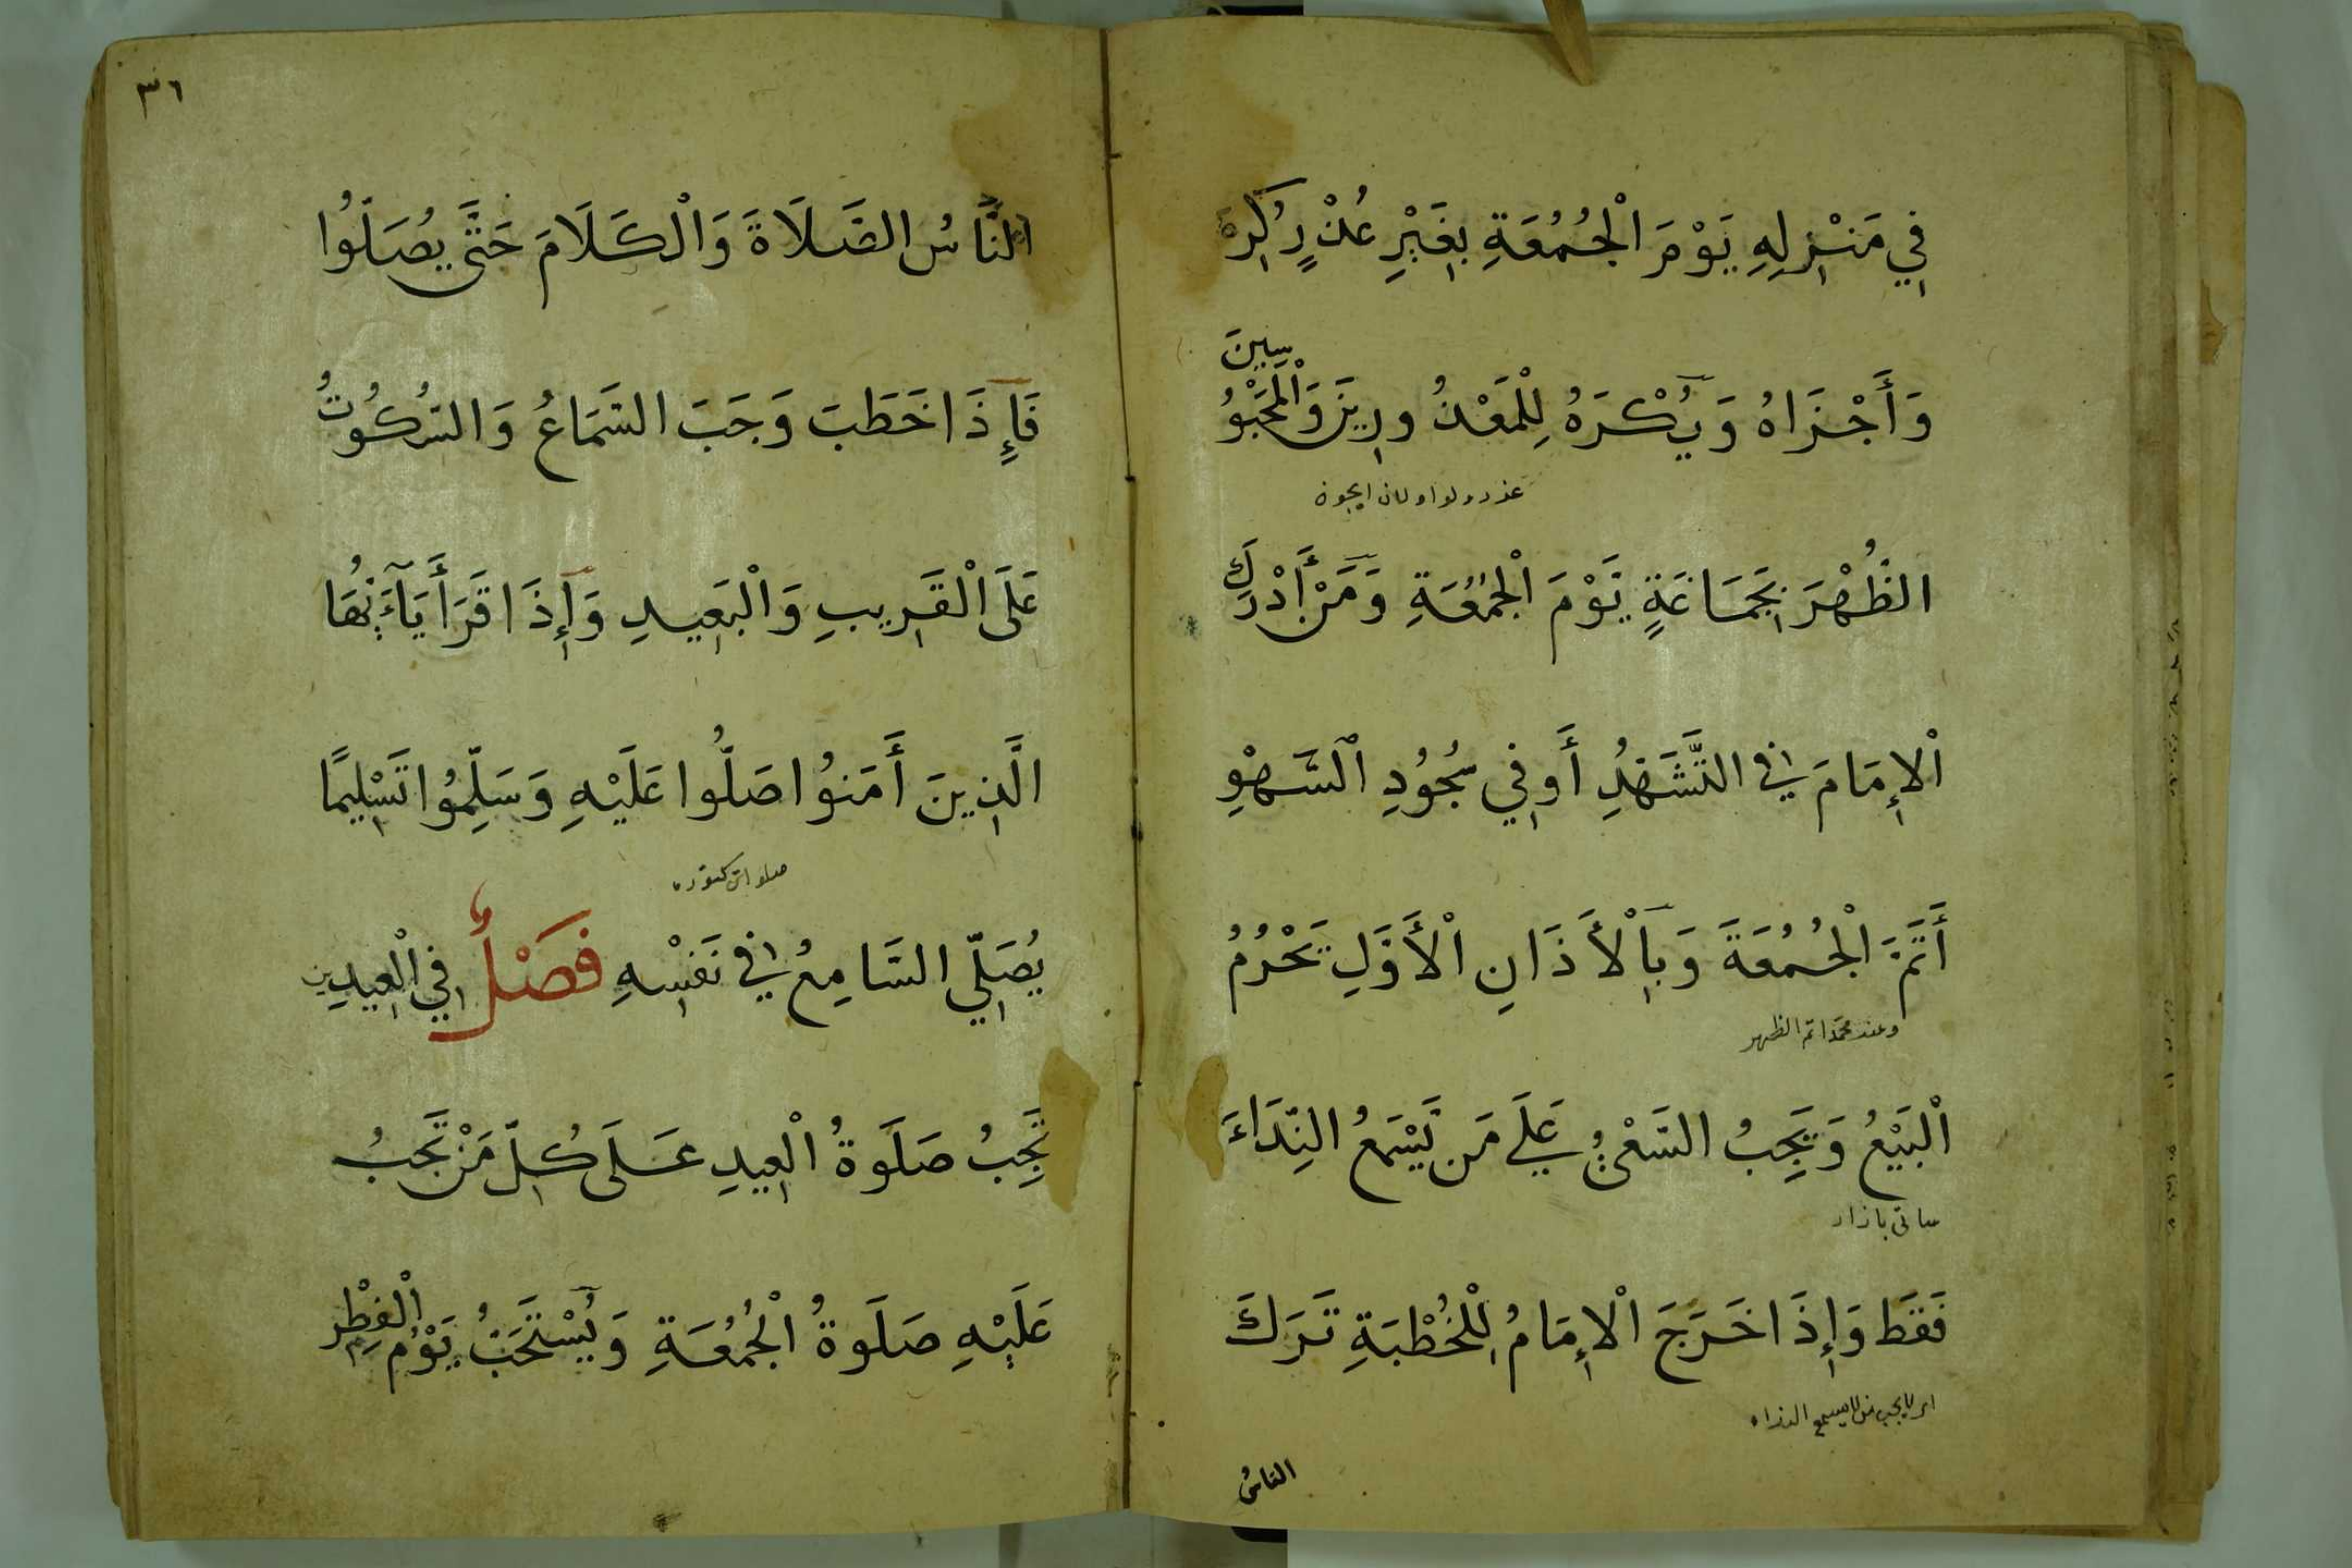 فِي مَنْزِلِهِ يَوْمَ الْجُمُعَةِ بِغَيْرِ عُذْرٍ كُرِهَ
وَأَجْزَاهُ وَيُكْرَهُ لِلْمَعْذُورِينَ وَالْمَحْبُوسِينَ
الظُّهْرَ بِجَمَاعَةٍ يَوْمَ الْجُمُعَةِ وَمَنْ أَدْرَكَ
الْإِمَامَ فِي التَّشَهُّدِ أَوْ فِي سُجُودِ السَّهْوِ
أَتَمَّ الْجُمُعَةَ وَبِالْأَذَانِ الْأَوَّلِ يَحْرُمُ
وعند محمد اتم الظهر
الْبَيْعُ وَيَجِبُ السَّعْيُ عَلَى مَن يَسْمَعُ النِّدَاءَ
صاتى بازار
فَقَط وَإِذَا خَرَجَ الْإِمَامُ لِلْخُطْبَةِ تَرَكَ
لا يجب من لا يسمع النداء
الناسُ
٣٦
النَّاسُ الصَّلَاةَ وَالْكَلَامَ حَتَّى يُصَلُّوا
فَإِذَا خَطَبَ وَجَبَ السَّمَاعُ وَالسُّكُوتُ
عَلَى الْقَرِيبِ وَالْبَعِيدِ وَإِذَا قَرَأَ يَآءَيُّهَا
الَّذِينَ أَمَنُوا صَلُّوا عَلَيْهِ وَسَلِّمُوا تَسْلِيمًا
يُصَلِّي السَّامِعُ فِي نَفْسِهِ فَصْلٌ فِي الْعِيدَيْنِ
تَجِبُ صَلَوةُ الْعِيدِ عَلَى كُلِّ مَنْ تَجِبُ
عَلَيْهِ صَلَوةُ الْجُمُعَةِ وَيُسْتَحَبُّ يَوْمُ الْفِطْرِ